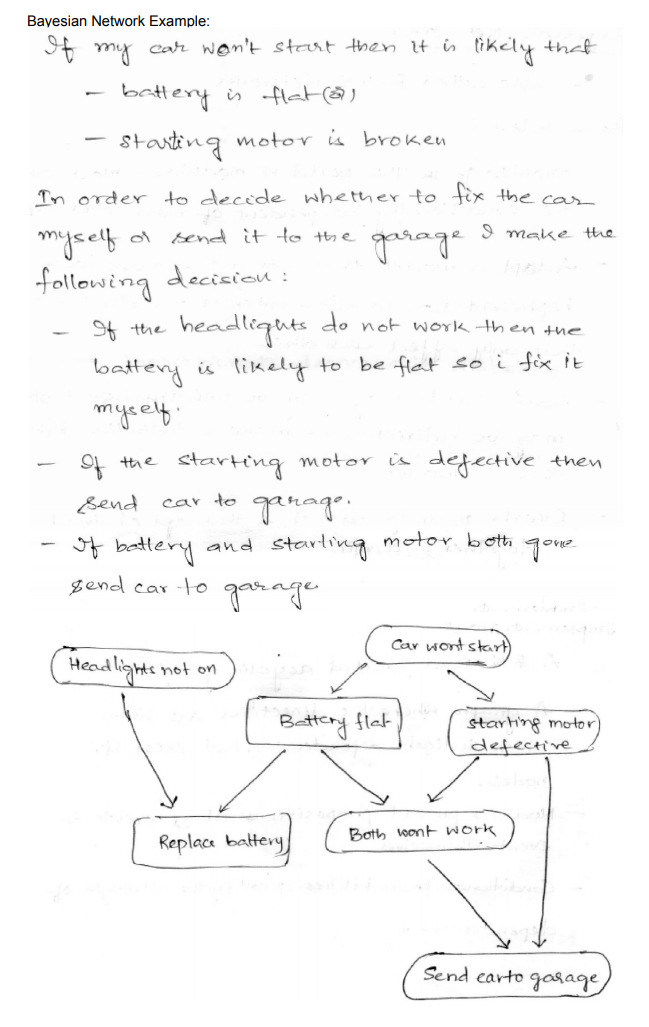 Bayesian Network Example:
If my car won't start then it is likely that
- battery is flat
- starting motor is broken
In order to decide whether to fix the car
myself or send it to the garage I make the
following decision :
- If the headlights do not work then the
battery is likely to be flat so i fix it
myself.
- If the starting motor is defective then
send car to garage.
- If battery and starting motor both gone
send car to garage
Car wont start
Headlights not on
Battery flat
starting motor
defective
Replace battery
Both wont work
Send car to garage